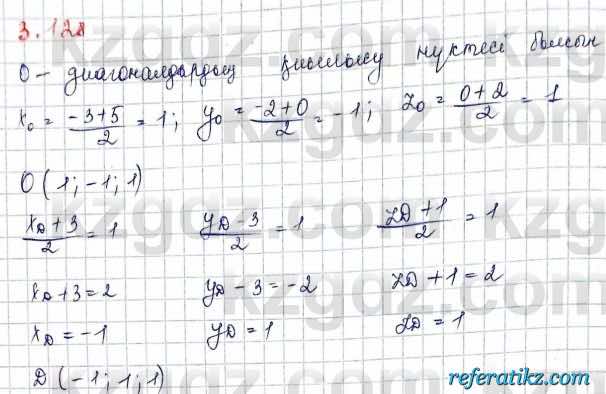 3.128
O - диагоналдардың қиылысу нүктесі болсын
x₀ = (-3+5)/2 = 1; y₀ = (-2+0)/2 = -1; z₀ = (0+2)/2 = 1
O(1; -1; 1)
(x_D + 3)/2 = 1 (y_D - 3)/2 = 1 (z_D + 1)/2 = 1
x_D + 3 = 2 y_D - 3 = -2 z_D + 1 = 2
x_D = -1 y_D = 1 z_D = 1
D(-1; 1; 1)
kzgdz.com
referatikz.com